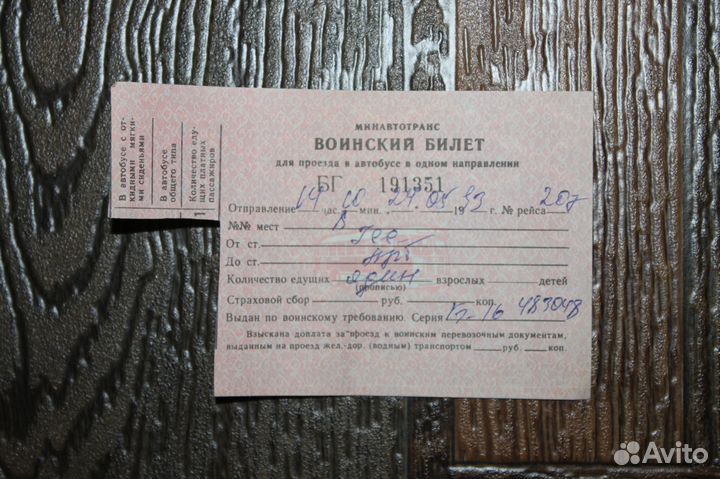 В автобусе с от-
кидными мягки-
ми сиденьями
В автобусе
общего типа
Количество еду-
щих платных
пассажиров
1
МИНАВТОТРАНС
ВОИНСКИЙ БИЛЕТ
для проезда в автобусе в одном направлении
БГ 191351
Отправление 14 час 10 мин. 24.05 19 93 г. № рейса 207
№№ мест 8
От ст.
До ст.
Количество едущих один взрослых детей
(прописью)
Страховой сбор руб. коп.
Выдан по воинскому требованию Серия 483048
Взыскана доплата за проезд к воинским перевозочным документам,
выданным на проезд жел.-дор. (водным) транспортом руб. коп.
Avito